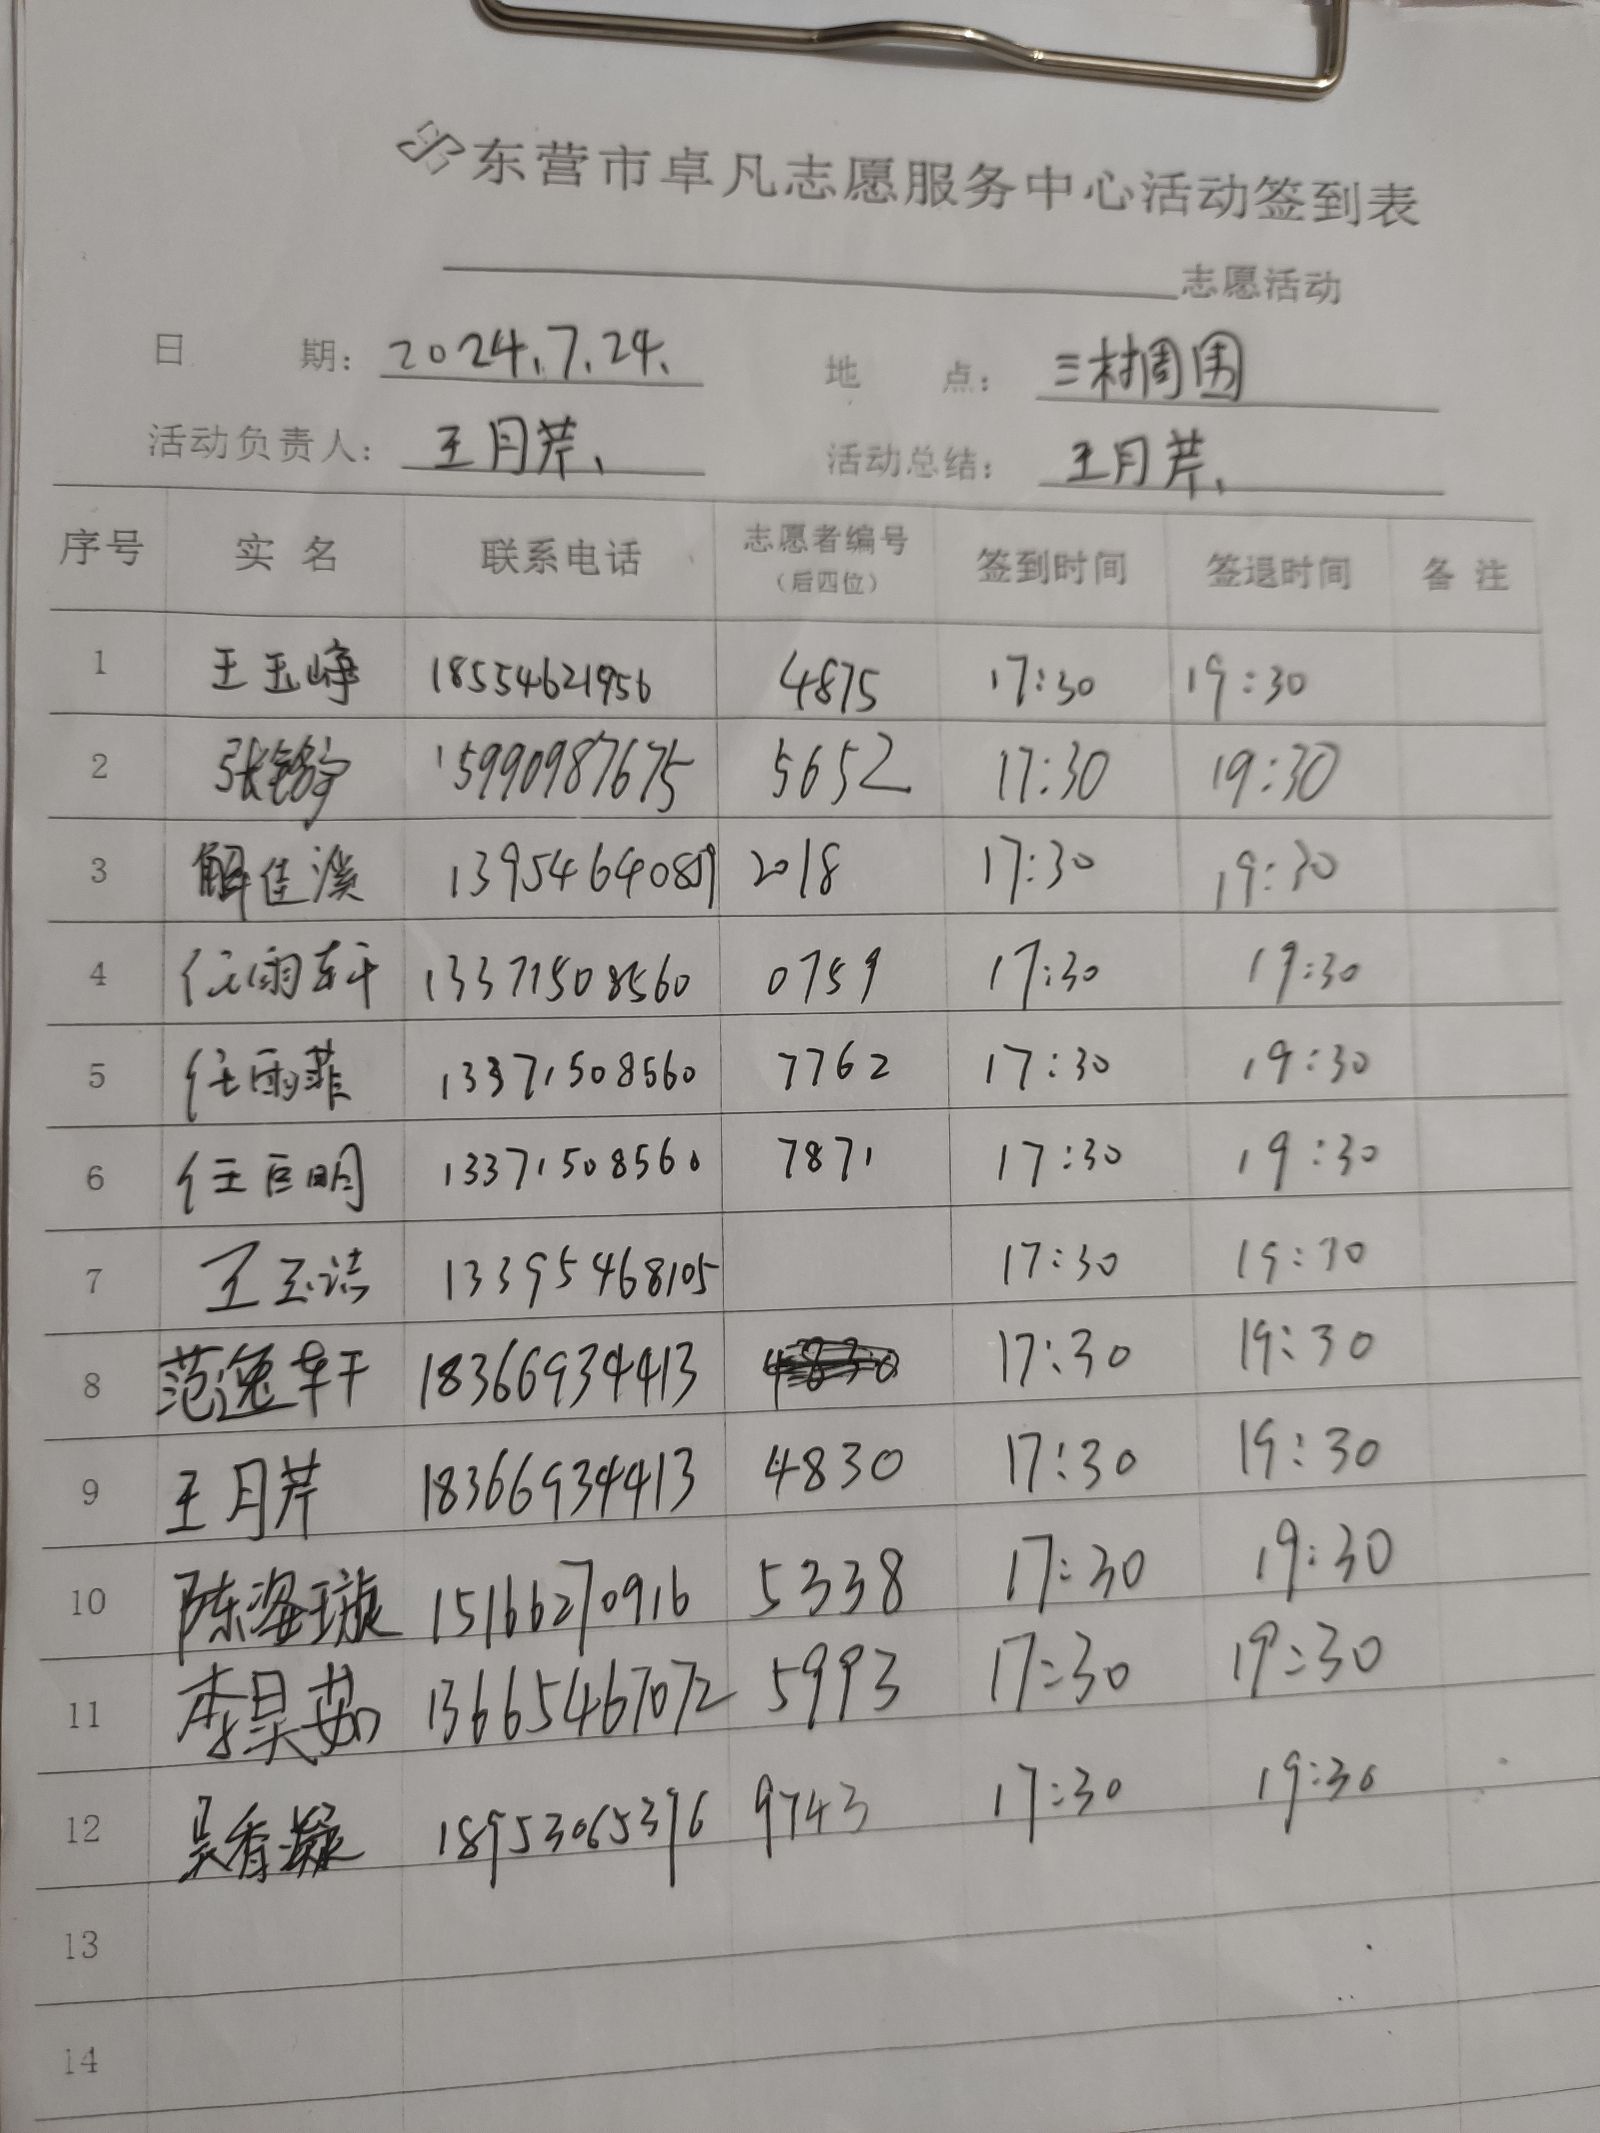 东营市卓凡志愿服务中心活动签到表
志愿活动
日 期： 2024.7.24. 地 点： 三村周围
活动负责人： 王月芹、 活动总结： 王月芹、
序号 实 名 联系电话 志愿者编号（后四位） 签到时间 签退时间 备 注
1 王玉峥 18554621956 4875 17:30 19:30
2 张铭宇 15990987675 5652 17:30 19:30
3 解佳溪 2018 17:30 19:30
4 任雨轩 13371508560 0759 17:30 19:30
5 任雨菲 13371508560 7762 17:30 19:30
6 任巨明 13371508560 7871 17:30 19:30
7 王玉洁 13395468105 17:30 19:30
8 范逸轩 18366934413 17:30 19:30
9 王月芹 18366934413 4830 17:30 19:30
10 陈姿璇 15166270916 5338 17:30 19:30
11 李昊茹 13665467072 5993 17:30 19:30
12 吴香凝 18953065396 9743 17:30 19:30
13
14